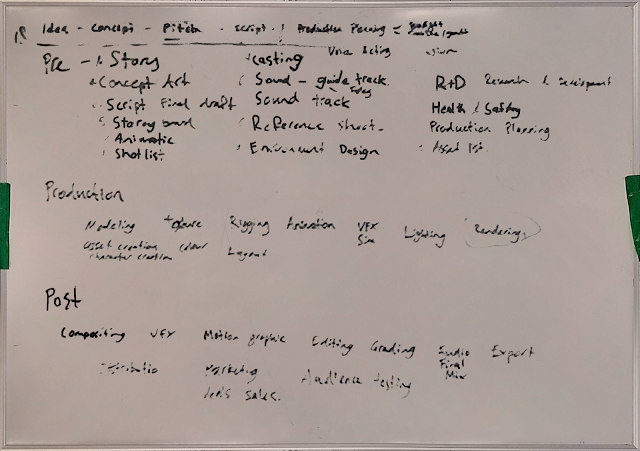 Idea - concept - Pitch - script / Production Planning -
Voice Acting
Pre - Story
Concept Art
Script Final draft
Story board
Animatic
Shot list
casting
Sound - guide track.
Sound track
Reference sheet.
Environment Design
R+D Research & Development
Health & Safety
Production Planning
Asset list.
Production
Modeling texture Rigging Animation VFX Sim Lighting Rendering
asset creation colour Layout
character creation
Post
Compositing VFX Motion graphic Editing Grading Audio Final Mix Export
Marketing Audience testing
sales.